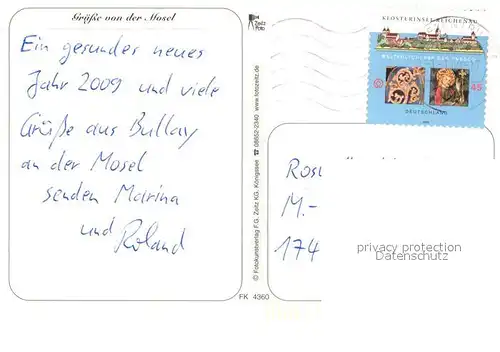 Grüße von der Mosel
Ein gesundes neues
Jahr 2009 und viele
Grüße aus Bullay
an der Mosel
senden Marina
und Roland
Zeitz
Foto
© Fotokunstverlag F.G. Zeitz KG, Königssee ☎ 08652-2340 www.fotozeitz.de
FK 4360
KLOSTERINSEL REICHENAU
WELTKULTURERBE DER UNESCO
45
DEUTSCHLAND
M.-
174
privacy protection
Datenschutz